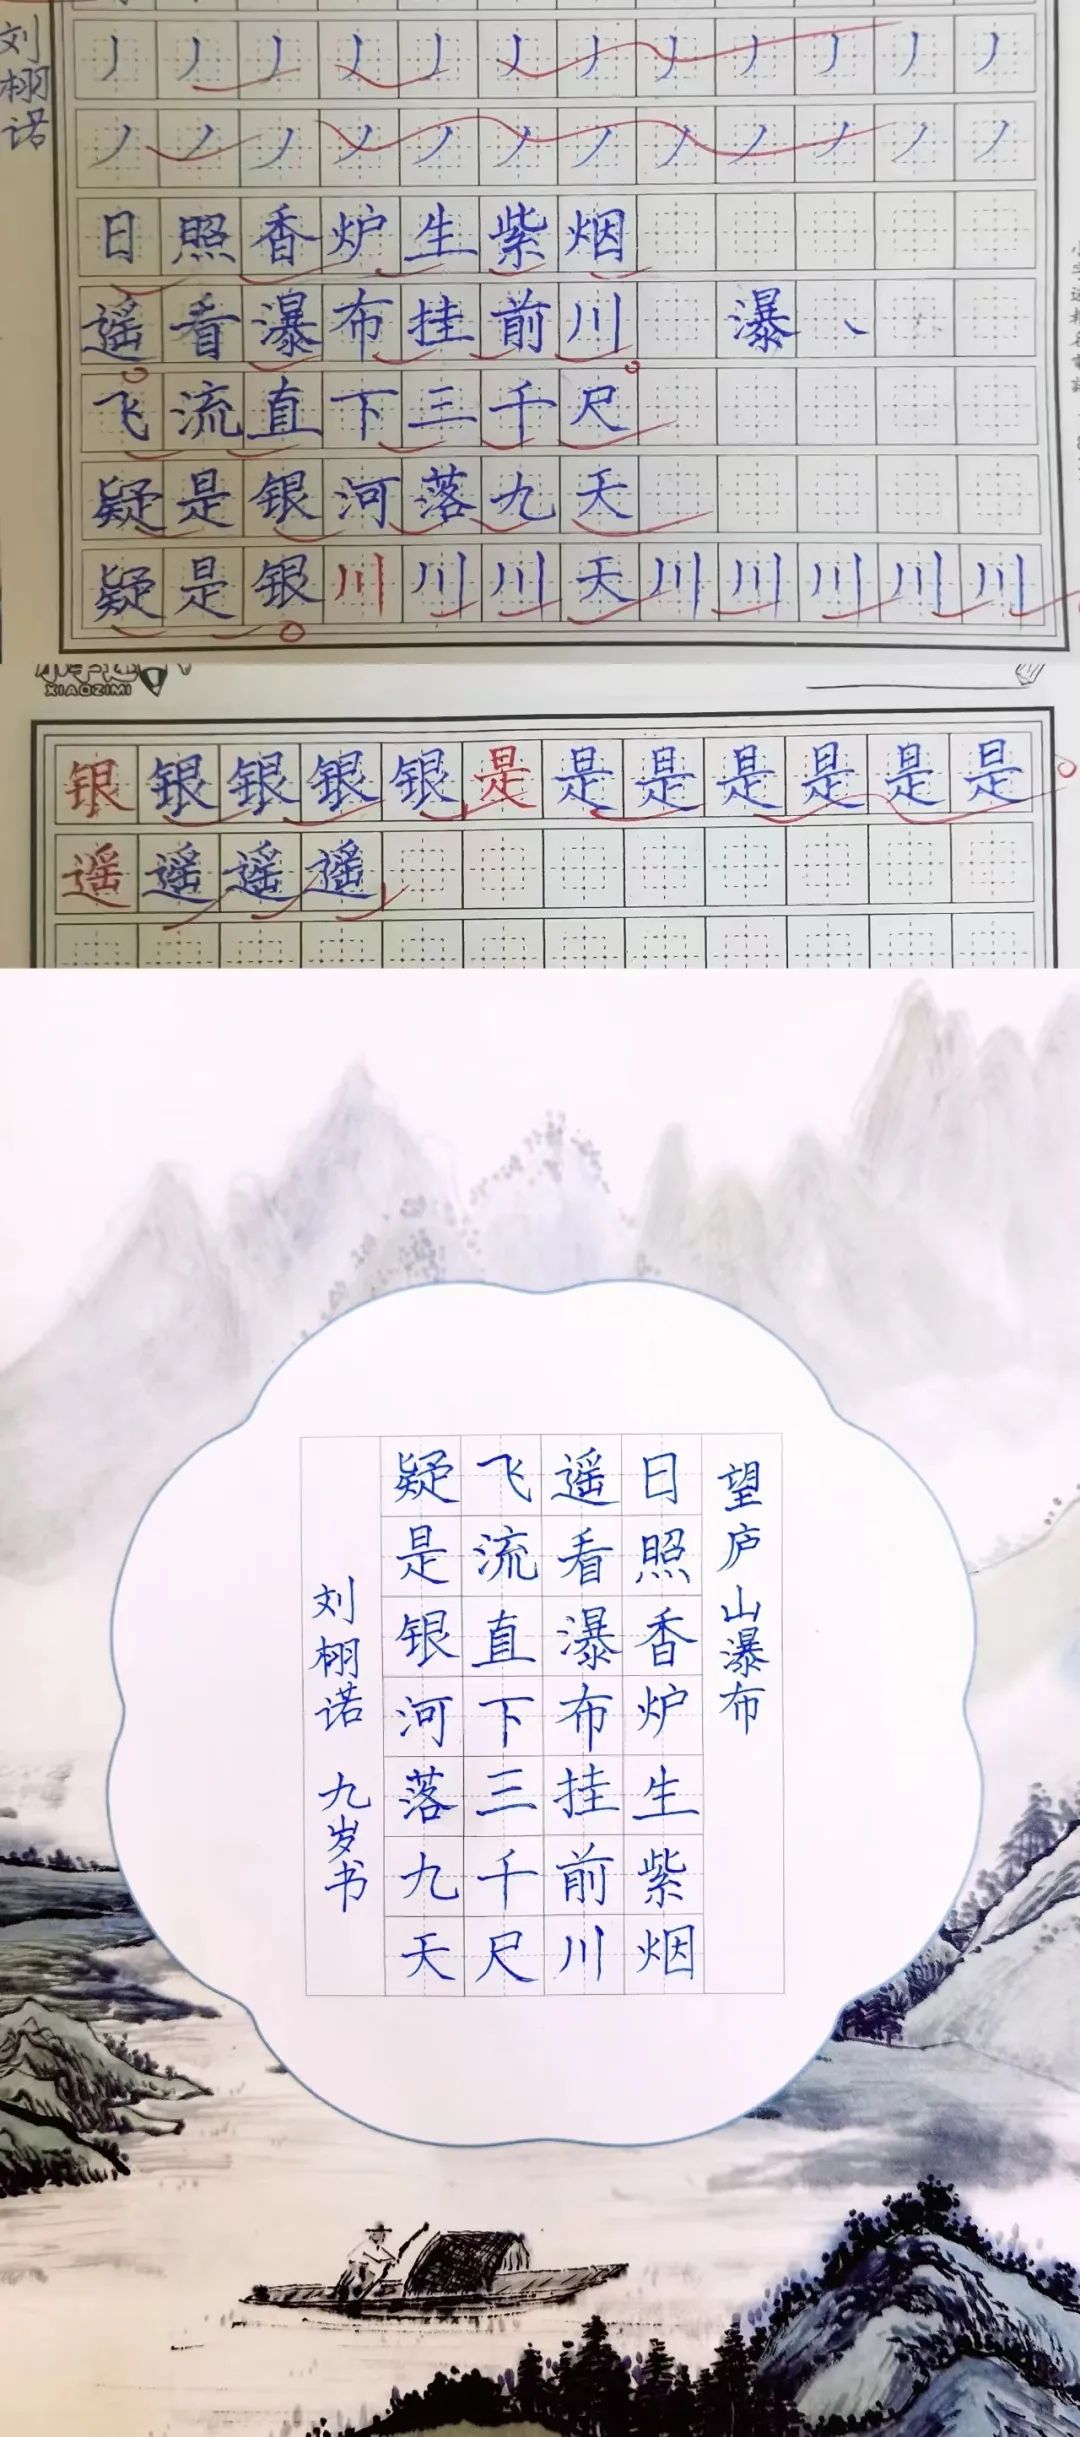 刘栩诺
丿丿丿丿丿丿丿丿丿丿丿丿
丿丿丿丿丿丿丿丿丿丿丿丿
日照香炉生紫烟
遥看瀑布挂前川 瀑丶
飞流直下三千尺
疑是银河落九天
疑是银川川川天川川川川川
XIAOZIMI
银银银银银是是是是是是是
遥遥遥遥
望庐山瀑布
日照香炉生紫烟
遥看瀑布挂前川
飞流直下三千尺
疑是银河落九天
刘栩诺 九岁书